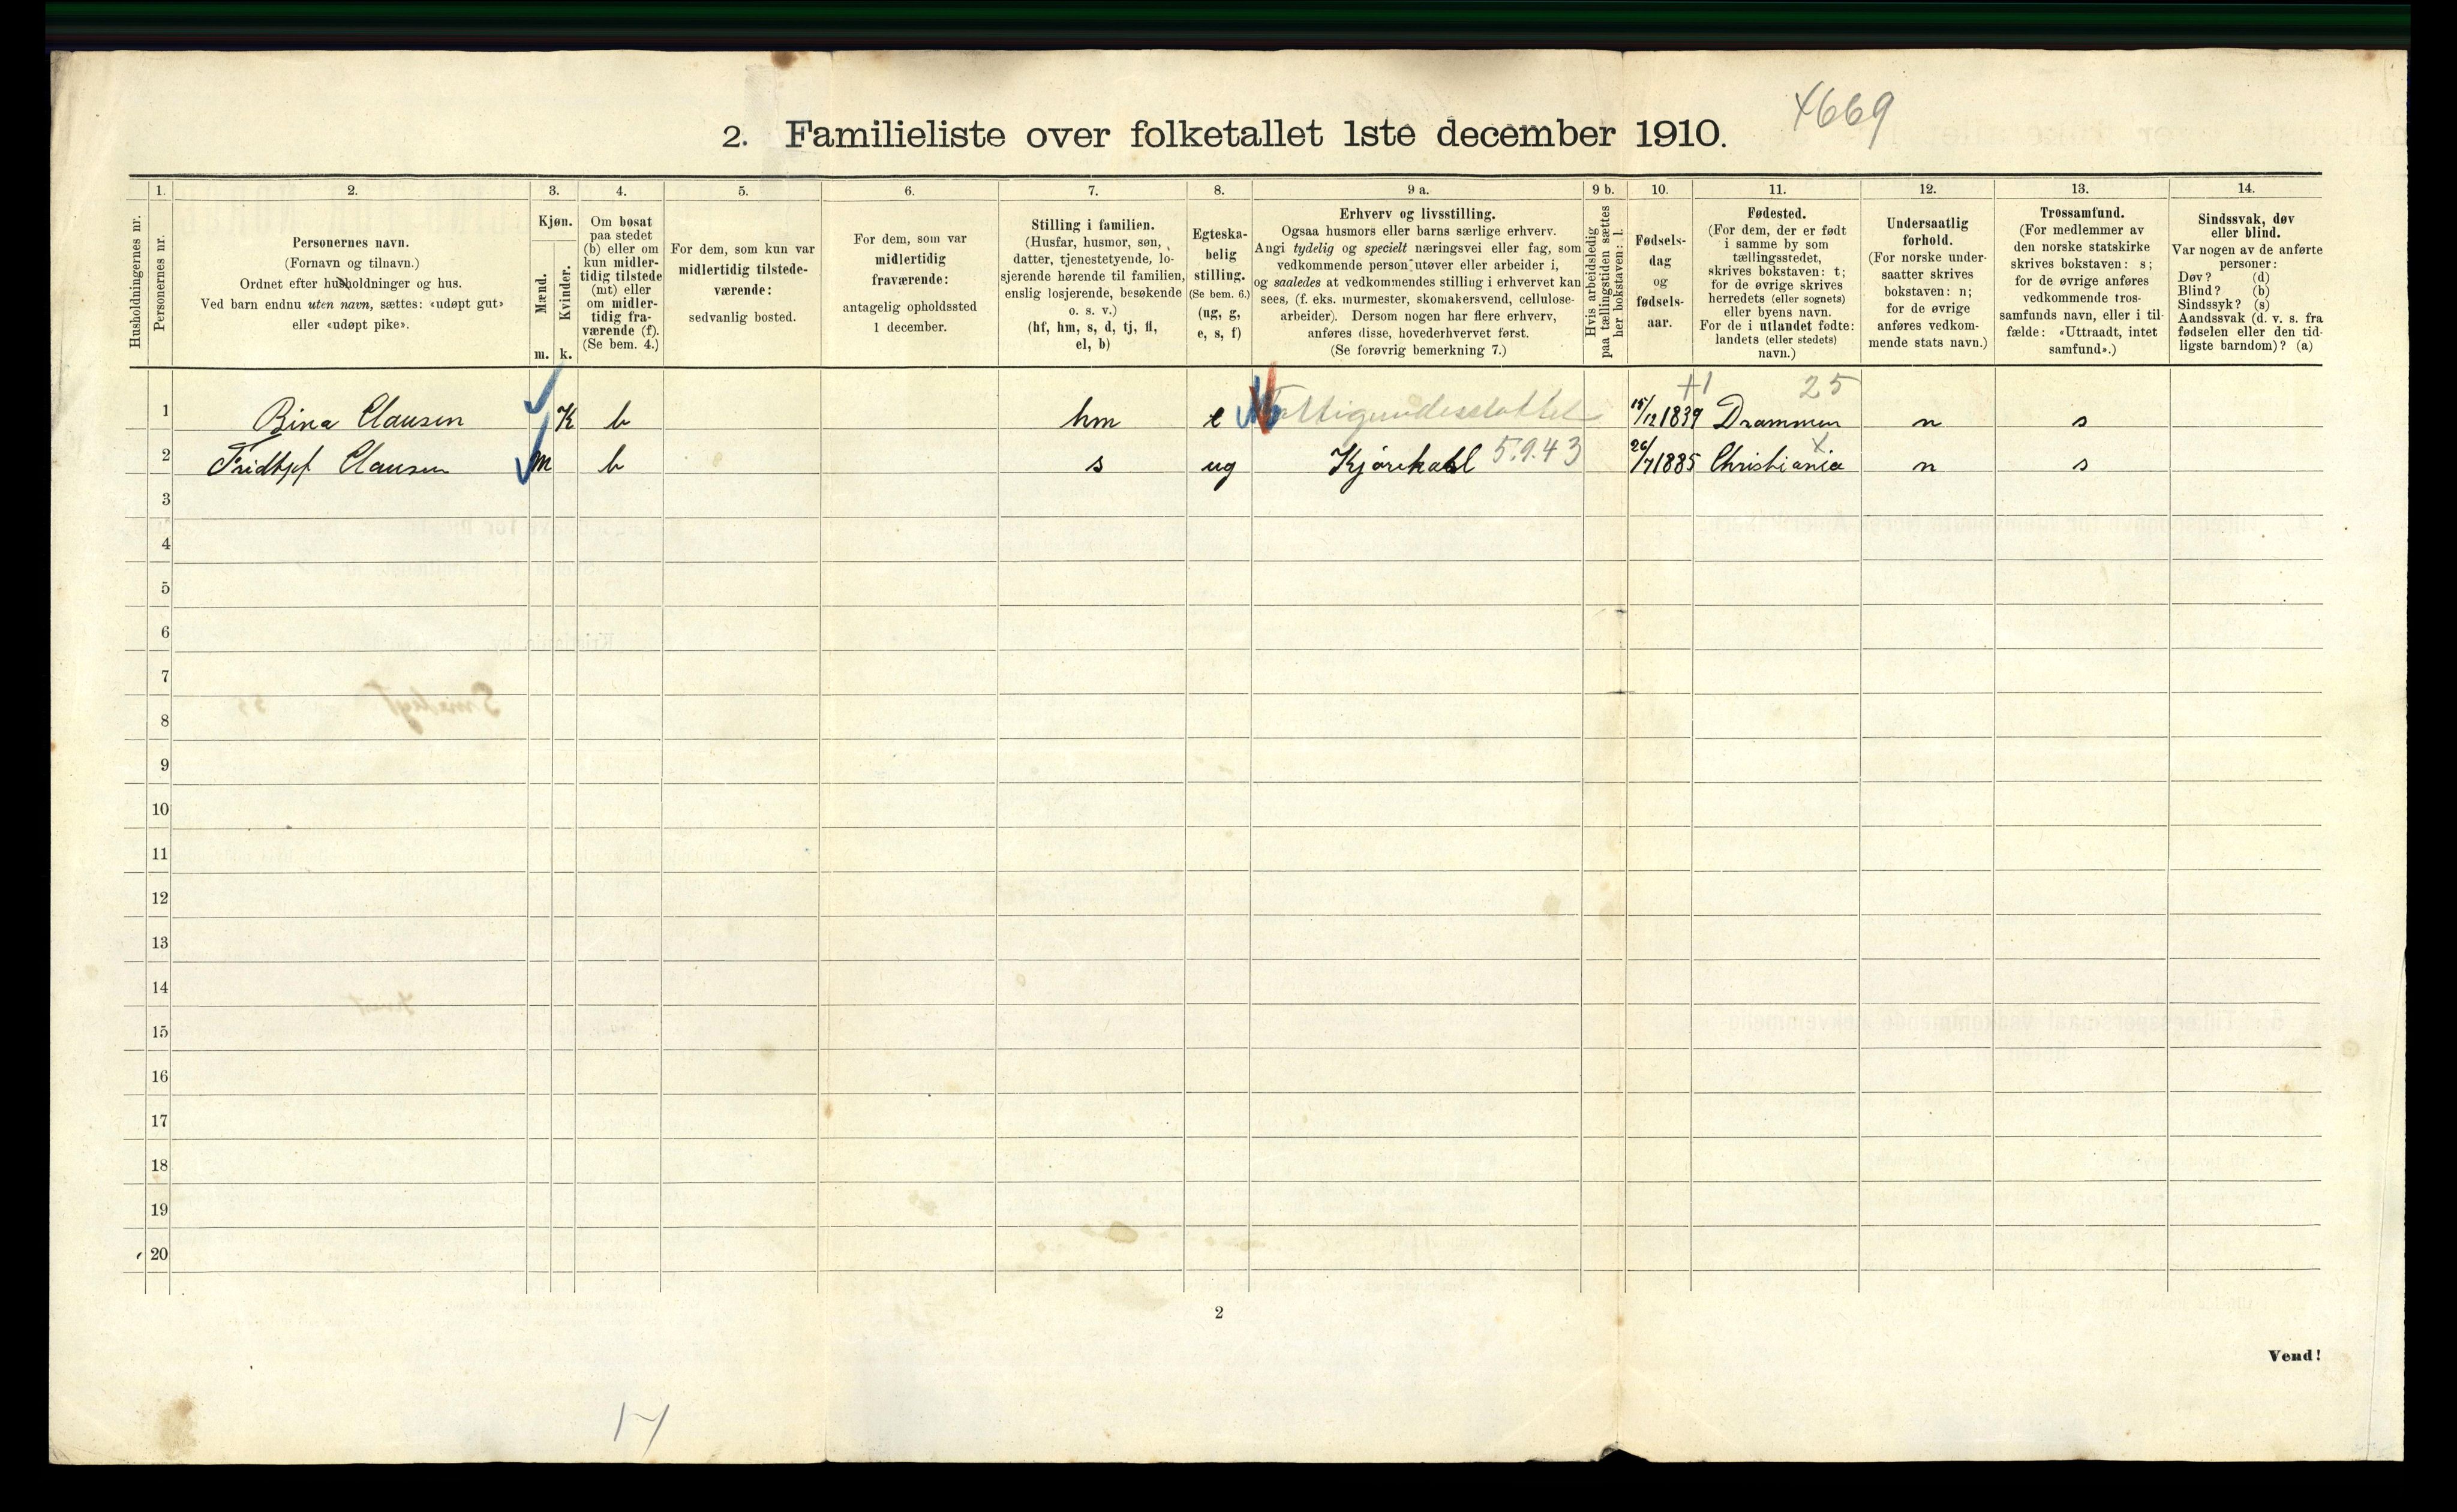 4669
2. Familieliste over folketallet 1ste december 1910.
Husholdningernes nr.
1.
Personernes nr.
2.
Personernes navn.
(Fornavn og tilnavn.)
Ordnet efter husholdninger og hus.
Ved barn endnu uten navn, sættes: «udøpt gut»
eller «udøpt pike».
3.
Kjøn.
Mænd.
m.
Kvinder.
k.
4.
Om bosat
paa stedet
(b) eller om
kun midler-
tidig tilstede
(mt) eller
om midler-
tidig fra-
værende (f).
(Se bem. 4.)
5.
For dem, som kun var
midlertidig tilstede-
værende:
sedvanlig bosted.
6.
For dem, som var
midlertidig
fraværende:
antagelig opholdssted
1 december.
7.
Stilling i familien.
(Husfar, husmor, søn,
datter, tjenestetyende, lo-
sjerende hørende til familien,
enslig losjerende, besøkende
o. s. v.)
(hf, hm, s, d, tj, fl,
el, b)
8.
Egteska-
belig
stilling.
(Se bem. 6.)
(ug, g,
e, s, f)
9 a.
Erhverv og livsstilling.
Ogsaa husmors eller barns særlige erhverv.
Angi tydelig og specielt næringsvei eller fag, som
vedkommende person utøver eller arbeider i,
og saaledes at vedkommendes stilling i erhvervet kan
sees, (f. eks. murmester, skomakersvend, cellulose-
arbeider). Dersom nogen har flere erhverv,
anføres disse, hovederhvervet først.
(Se forøvrig bemerkning 7.)
9 b.
Hvis arbeidsledig
paa tællingstiden sættes
her bokstaven: l.
10.
Fødsels-
dag
og
fødsels-
aar.
11.
Fødested.
(For dem, der er født
i samme by som
tællingsstedet,
skrives bokstaven: t;
for de øvrige skrives
herredets (eller sognets)
eller byens navn.
For de i utlandet fødte:
landets (eller stedets)
navn.)
12.
Undersaatlig
forhold.
(For norske under-
saatter skrives
bokstaven: n;
for de øvrige
anføres vedkom-
mende stats navn.)
13.
Trossamfund.
(For medlemmer av
den norske statskirke
skrives bokstaven: s;
for de øvrige anføres
vedkommende tros-
samfunds navn, eller i til-
fælde: «Uttraadt, intet
samfund».)
14.
Sindssvak, døv
eller blind.
Var nogen av de anførte
personer:
Døv? (d)
Blind? (b)
Sindssyk? (s)
Aandssvak (d. v. s. fra
fødselen eller den tid-
ligste barndom)? (a)
+1 25
1 Bina Clausen K b hm e Fattigunderstøttet 15/12 1839 Drammen n s
2 Fridtjof Clausen m b s ug Kjørekarl 5.9.43 26/7 1885 Christiania x n s
3
4
5
6
7
8
9
10
11
12
13
14
15
16
17
18
19
20
2
Vend!